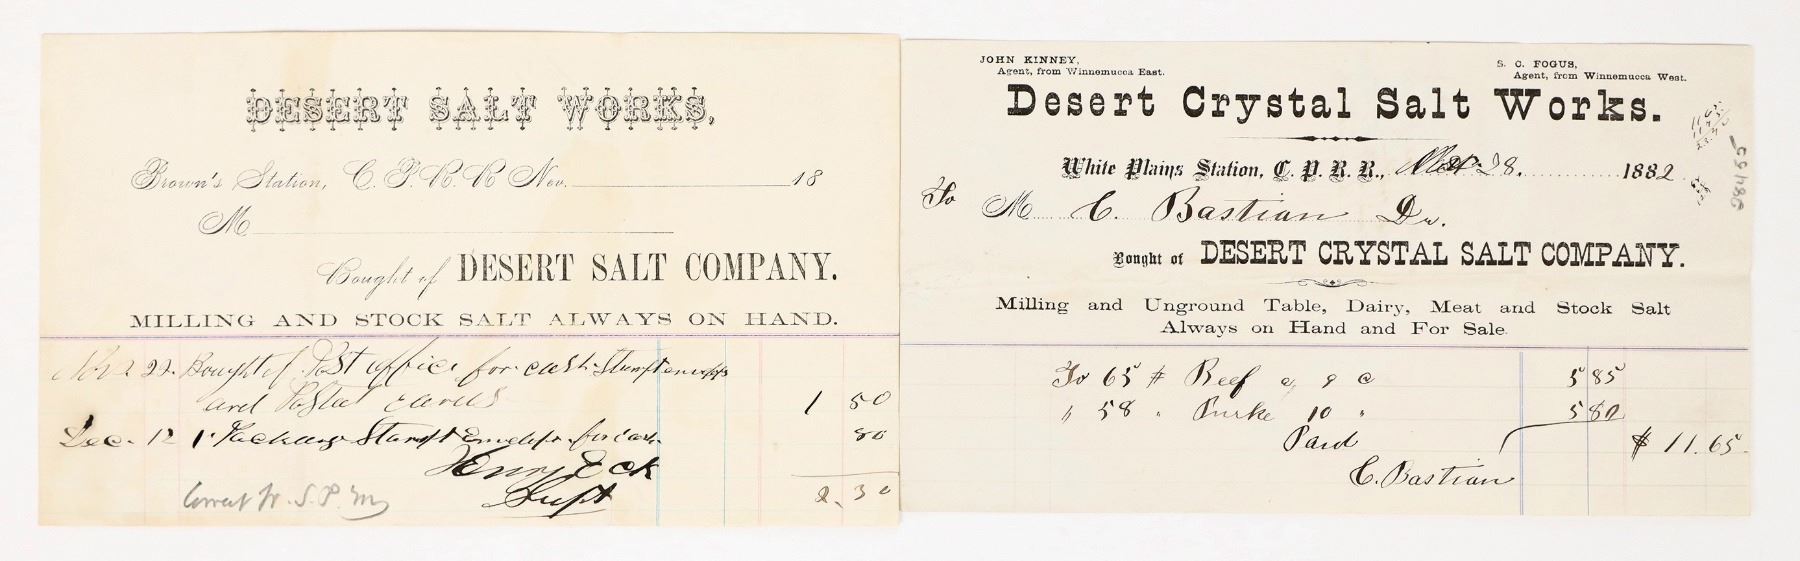 DESERT SALT WORKS,
Brown's Station, C. P. R. R. Nev. 18
M
Bought of DESERT SALT COMPANY.
MILLING AND STOCK SALT ALWAYS ON HAND.
Nov. 22. Bought of Post office for cash
and Postal cards 1 50
Dec. 12 1 Package Stampt Envelops for cash 80
Henry Eck
Supt
Correct W. S. P.
2.30
JOHN KINNEY,
Agent, from Winnemucca East.
S. C. FOGUS,
Agent, from Winnemucca West.
Desert Crystal Salt Works.
White Plains Station, C. P. R. R., 28. 1882
To M C. Bastian Dr.
Bought of DESERT CRYSTAL SALT COMPANY.
Milling and Unground Table, Dairy, Meat and Stock Salt
Always on Hand and For Sale.
To 65 # Beef @ 9 c 5 85
" 58 " Purke 10 " 5 80
Paid $ 11.65
C. Bastian